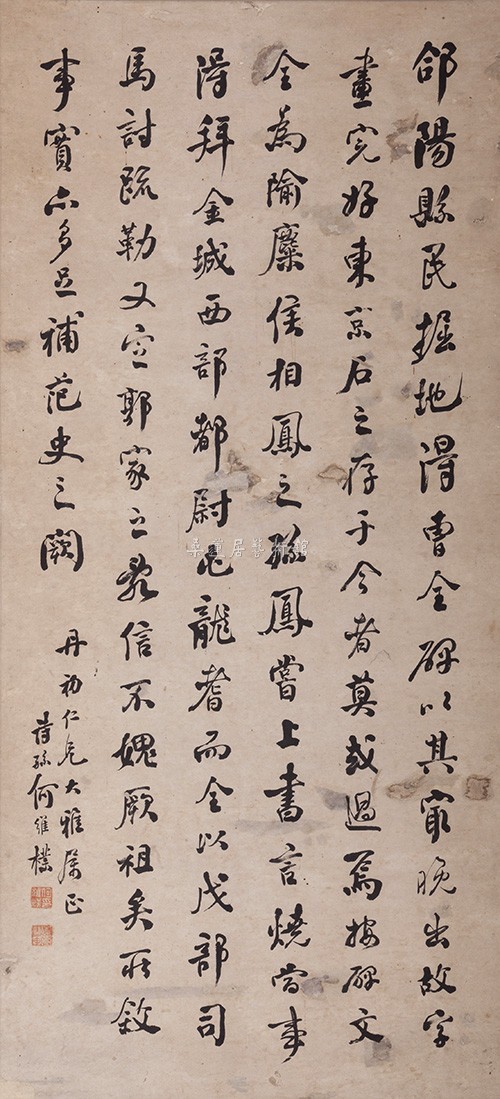 郃陽縣民掘地得曹全碑以其最晚出故字
畫完好東京石之存于今者莫或過焉按碑文
全為隃麋侯相鳳之孫鳳嘗上書言燒當事
得拜金城西部都尉屯龍耆而全以戊部司
馬討疏勒又定郭家之亂信不媿厥祖矣所敘
事實亦多足補范史之闕
丹初仁兄大雅屬正
詩孫何維樸
桑蓮居藝術館